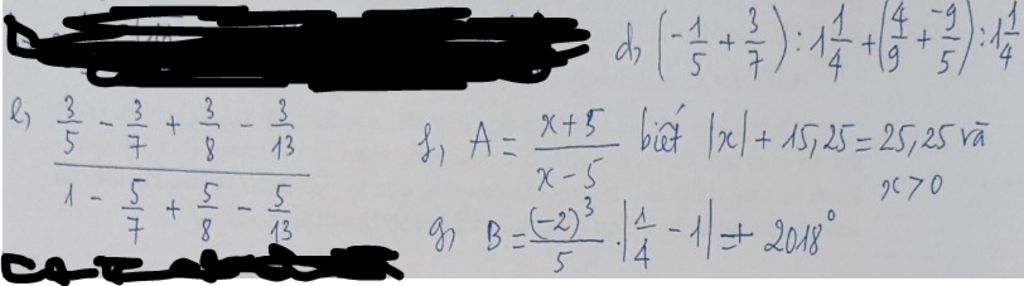 d, (-1/5 + 3/7) : 1 1/4 + (4/9 + -9/5) : 1 1/4
e, (3/5 - 3/7 + 3/8 - 3/13) / (1 - 5/7 + 5/8 - 5/13)
f, A = (x+5)/(x-5) biết |x| + 15,25 = 25,25 và
x > 0
g, B = (-2)³/5 · |1/4 - 1| + 2018⁰